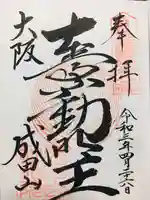 奉拝
令和三年四月二十六日
大聖不動明王
大阪
成田山